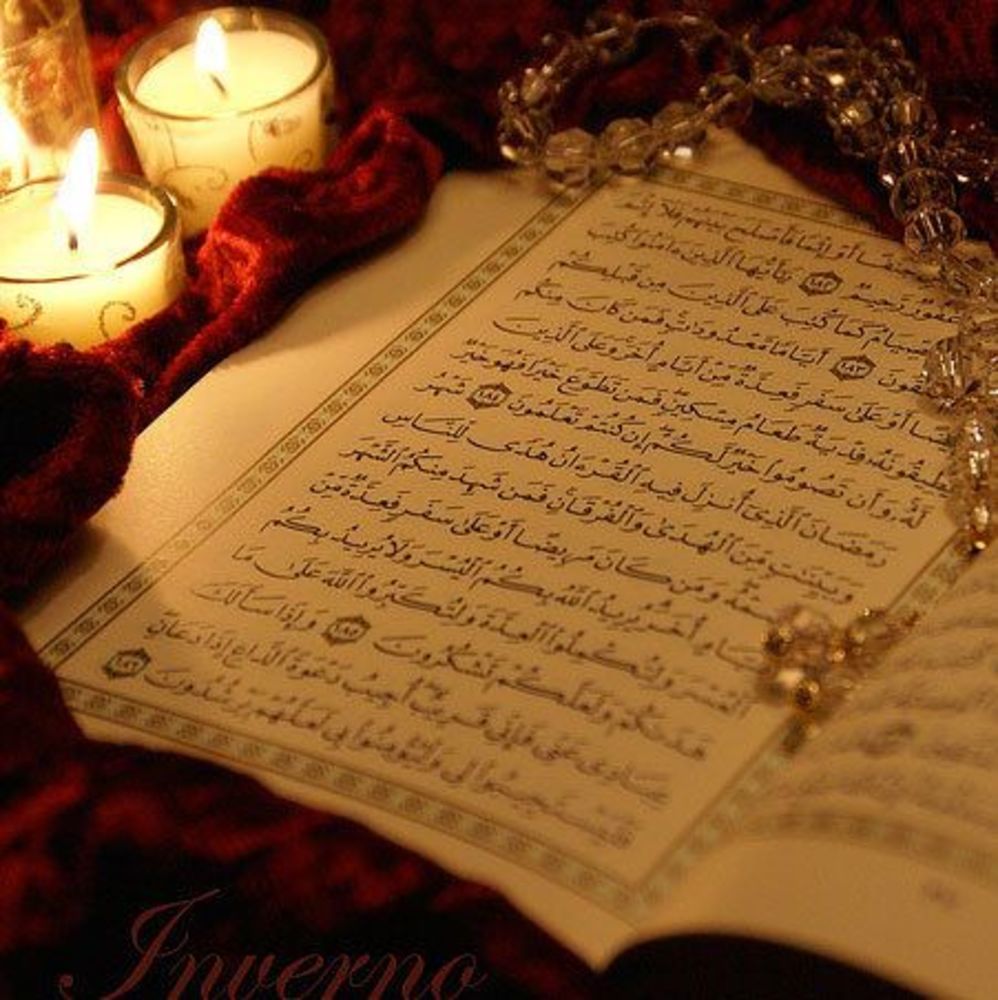 أَوْ إِثْمًا فَأَصْلَحَ بَيْنَهُمْ فَلَآ إِثْمَ
غَفُورٌ رَّحِيمٌ ١٨٢ يَٰٓأَيُّهَا ٱلَّذِينَ ءَامَنُوا۟ كُتِبَ
ٱلصِّيَامُ كَمَا كُتِبَ عَلَى ٱلَّذِينَ مِن قَبْلِكُمْ
تَتَّقُونَ ١٨٣ أَيَّامًا مَّعْدُودَٰتٍ فَمَن كَانَ مِنكُم
مَّرِيضًا أَوْ عَلَىٰ سَفَرٍ فَعِدَّةٌ مِّنْ أَيَّامٍ أُخَرَ وَعَلَى ٱلَّذِينَ
يُطِيقُونَهُۥ فِدْيَةٌ طَعَامُ مِسْكِينٍ فَمَن تَطَوَّعَ خَيْرًا فَهُوَ خَيْرٌ
لَّهُۥ وَأَن تَصُومُوا۟ خَيْرٌ لَّكُمْ إِن كُنتُمْ تَعْلَمُونَ ١٨٤ شَهْرُ
رَمَضَانَ ٱلَّذِىٓ أُنزِلَ فِيهِ ٱلْقُرْءَانُ هُدًى لِّلنَّاسِ
وَبَيِّنَٰتٍ مِّنَ ٱلْهُدَىٰ وَٱلْفُرْقَانِ فَمَن شَهِدَ مِنكُمُ ٱلشَّهْرَ
فَلْيَصُمْهُ وَمَن كَانَ مَرِيضًا أَوْ عَلَىٰ سَفَرٍ فَعِدَّةٌ مِّنْ
أَيَّامٍ أُخَرَ يُرِيدُ ٱللَّهُ بِكُمُ ٱلْيُسْرَ وَلَا يُرِيدُ بِكُمُ
ٱلْعُسْرَ وَلِتُكْمِلُوا۟ ٱلْعِدَّةَ وَلِتُكَبِّرُوا۟ ٱللَّهَ عَلَىٰ مَا
هَدَىٰكُمْ وَلَعَلَّكُمْ تَشْكُرُونَ ١٨٥ وَإِذَا سَأَلَكَ
عِبَادِى عَنِّى فَإِنِّى قَرِيبٌ أُجِيبُ دَعْوَةَ ٱلدَّاعِ إِذَا دَعَانِ
فَلْيَسْتَجِيبُوا۟ لِى وَلْيُؤْمِنُوا۟ بِى لَعَلَّهُمْ يَرْشُدُونَ ١٨٦
Inverno